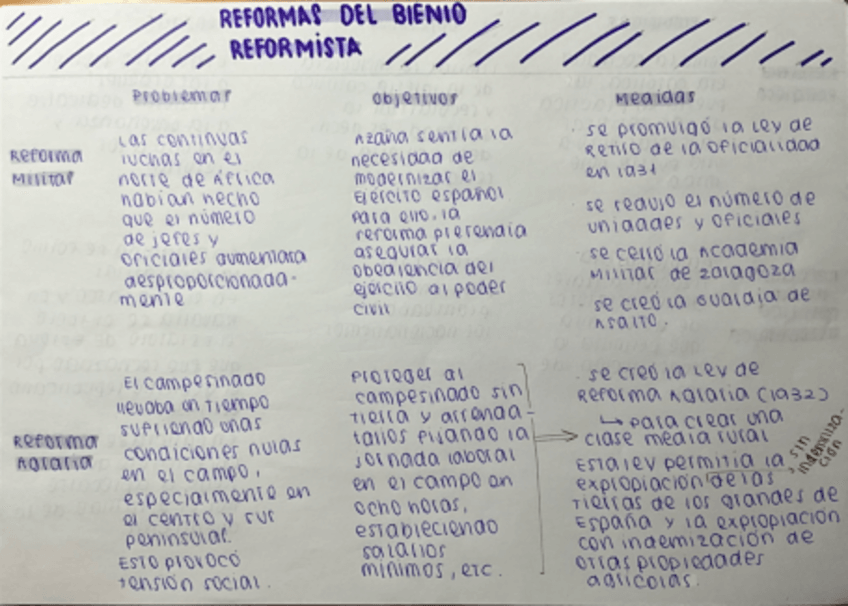 REFORMAS DEL BIENIO
REFORMISTA
Problemas
Objetivos
Medidas
Reforma
Militar
Las continuas
luchas en el
norte de África
habían hecho
que el número
de jefes y
oficiales aumentara
desproporcionada-
mente
Azaña sentía la
necesidad de
modernizar el
Ejército español
Para ello, la
reforma pretendía
asegurar la
obediencia del
ejército al poder
civil
· Se promulgó la Ley de
Retiro de la Oficialidad
en 1931
· Se redujo el número de
unidades y oficiales
· Se cerró la Academia
Militar de Zaragoza
· Se creó la Guardia de
Asalto.
Reforma
Agraria
El campesinado
llevaba un tiempo
sufriendo unas
condiciones nulas
en el campo,
especialmente en
el centro y sur
peninsular.
Esto provocó
tensión social.
Proteger al
campesinado sin
tierra y arrenda-
tarios fijando la
jornada laboral
en el campo en
ocho horas,
estableciendo
salarios
mínimos, etc.
· Se creó la Ley de
Reforma Agraria (1932)
↳ para crear una
clase media rural
Esta ley permitía la
expropiación de las
tierras de los grandes de
España y la expropiación
con indemización de
otras propiedades
agrícolas.
sin
indemniza-
ción